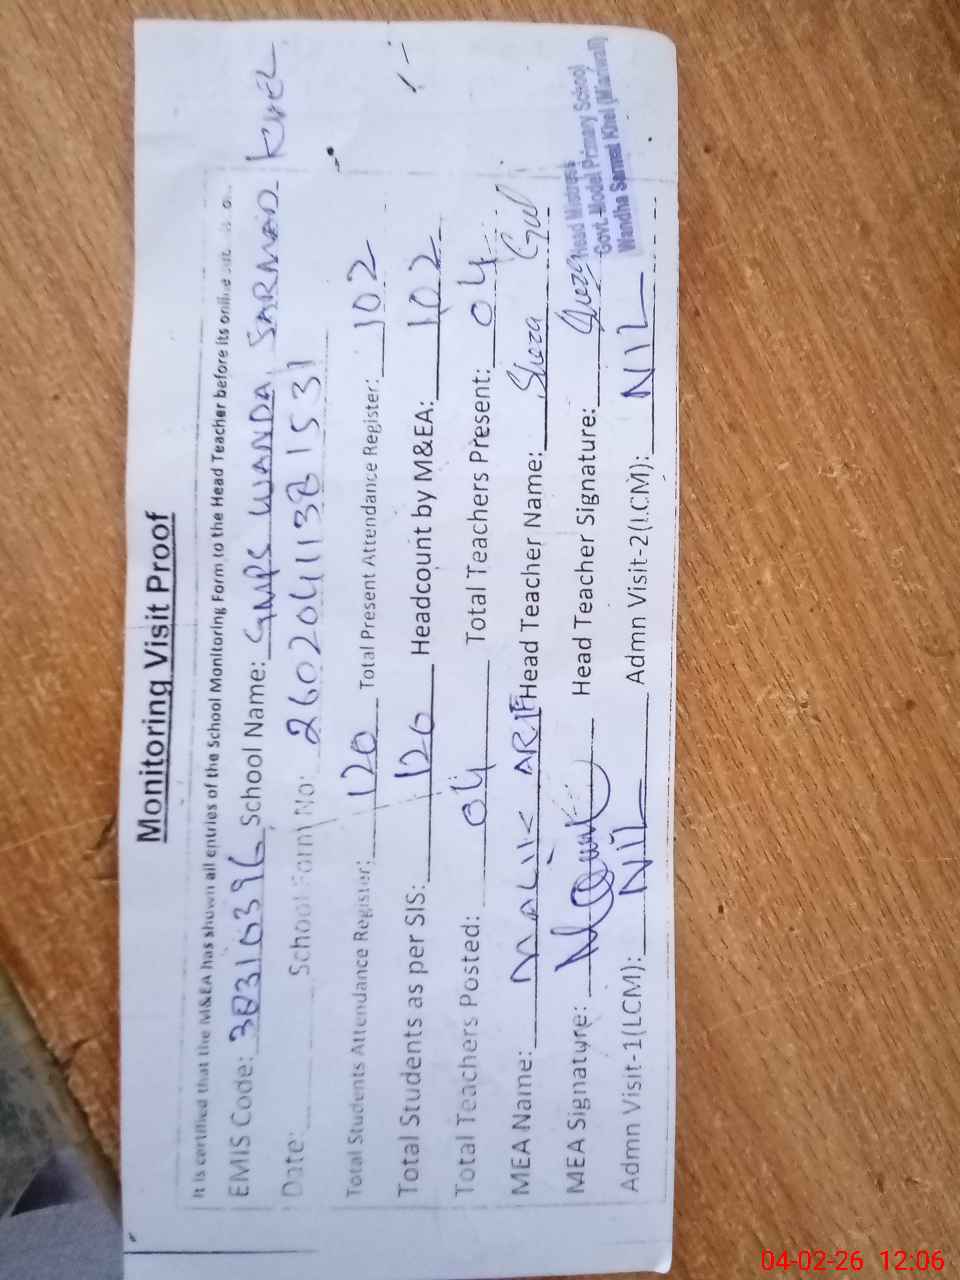 Monitoring Visit Proof
It is certified that the M&EA has shown all entries of the School Monitoring Form to the Head Teacher before its online
EMIS Code: 38310396 School Name: GMPS WANDA SARMAD KHEL
Date: School Form No: 26020411381531
Total Students Attendance Register: 120 Total Present Attendance Register: 102
Total Students as per SIS: 120 Headcount by M&EA: 102
Total Teachers Posted: 04 Total Teachers Present: 04
MEA Name: MALIK ARIF Head Teacher Name: Sheza Gul
MEA Signature: Head Teacher Signature:
Head Mistress
Govt. Model Primary School
Wandha Sarmat Khel (Mianwali)
Admn Visit-1(LCM): NIL Admn Visit-2(LCM): NIL
04-02-26 12:06